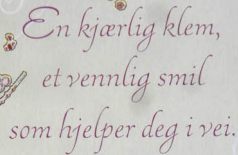 En kjærlig klem,
et vennlig smil
som hjelper deg i vei.